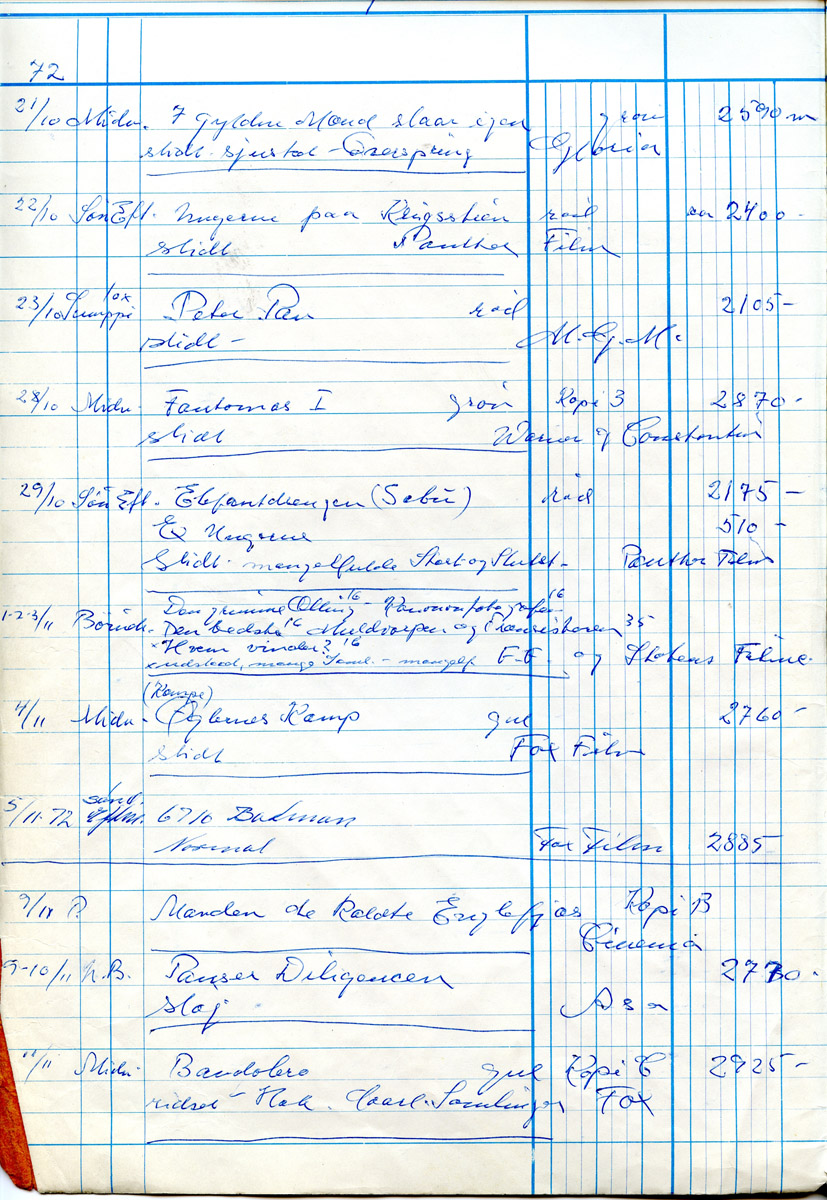 72
21/10 Midn. 7 gyldne Mænd slaar igen grøn 2590 m
slidt. - Gloria
22/10 Søn Eft. Ungerne paa rød ca 2400 -
slidt Panther Film
23/10 Peter Pan rød 2105 -
slidt - M.G.M.
28/10 Midn. Fantomas I grøn Kopi 3 2870 -
slidt Warner og Constantin
29/10 Søn Eft. Elefantdrengen (Sabu) rød 2175 -
Ex Ungerne 510 -
Slidt. mangelfulde Start og Slutet - Panther Film
Den grimme Ælling 16 - Kanonfotografen 16
1-2-3/11 Den bedste 16 Muldvarpen og 35
x Hvem vinder? 16
mange Saml. - F.F. og Statens Filmc.
(Kampe)
4/11 Midn - Ørnes Kamp gul 2760 -
slidt Fox Film
sønd.
5/11.72 Efterm. 6710 Batman
Normal Fox Film 2885
9/11 P. Manden de kaldte Kopi B
Cinema
9-10/11 N.B. Panser Diligencen 2770.
sløj Asa
11/11 Midn. Bandolero gul Kopi C 2925 -
ridset - Hak. Daarl. Samlinger Fox